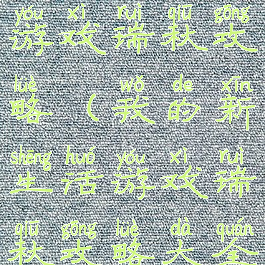 yóu xì ruì qiū gōng
游戏瑞秋攻
lüè wǒ de xīn
略（我的新
shēng huó yóu xì ruì
生活游戏瑞
qiū gōng lüè dà quán
秋攻略大全